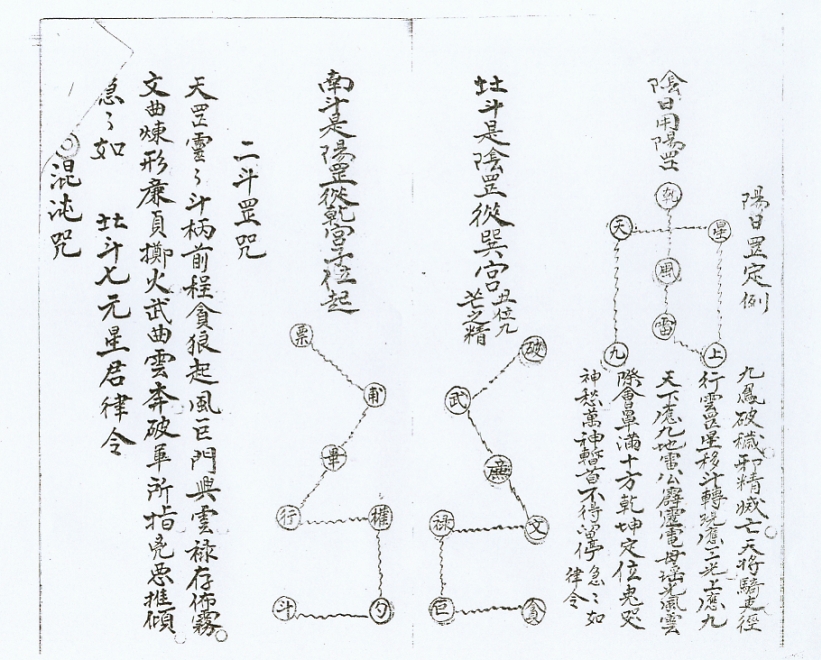 陽日罡定例
九鳳破穢邪精滅亡天將騎吏徑
行雲罡星移斗轉 應三光上應九
天下應九地雷公霹靂電母瑤光風雲
際會罩滿十方乾坤定位鬼哭
神愁萬神暫首不得 停急々如
律令
陰日用陽罡
乾
天
星
風
雷
九
上
北斗是陰罡從巽宮丑位九
芒之精
破
武
廉
文
禄
巨
貪
南斗是陽罡從乾宮子位起
票
甫
畢
行
權
斗
勺
二斗罡咒
天罡靈々斗柄前程貪狼起風巨門興雲禄存佈霧
文曲煉形廉貞擲火武曲雲奔破軍所指 惡推傾
急々如 北斗七元星君律令
混沌咒